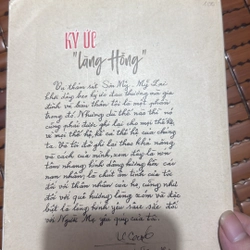 KÝ ỨC
"Làng Hồng"
Vụ thảm sát Sơn Mỹ - Mỹ Lai
khá đông bao ký ức đau thương của gia
đình và bản thân tôi là một phần
trong đó. Nhưng dù thế nào thì nó
cũng phải được ghi lại cho mọi thế hệ,
có mọi thế hệ, kể cả thế hệ của chúng
ta. Và tôi đã ghi lại theo khả năng
và cách của mình, xem đây là nén
tâm hương kính dâng hương hồn các
nạn nhân, là chút ân tình của tôi
đối với thân nhân của họ, cũng như
đối với quê hương làng xóm và đặc
biệt là lòng kính yêu sâu sắc đối
với Người Mẹ yêu quý của tôi.